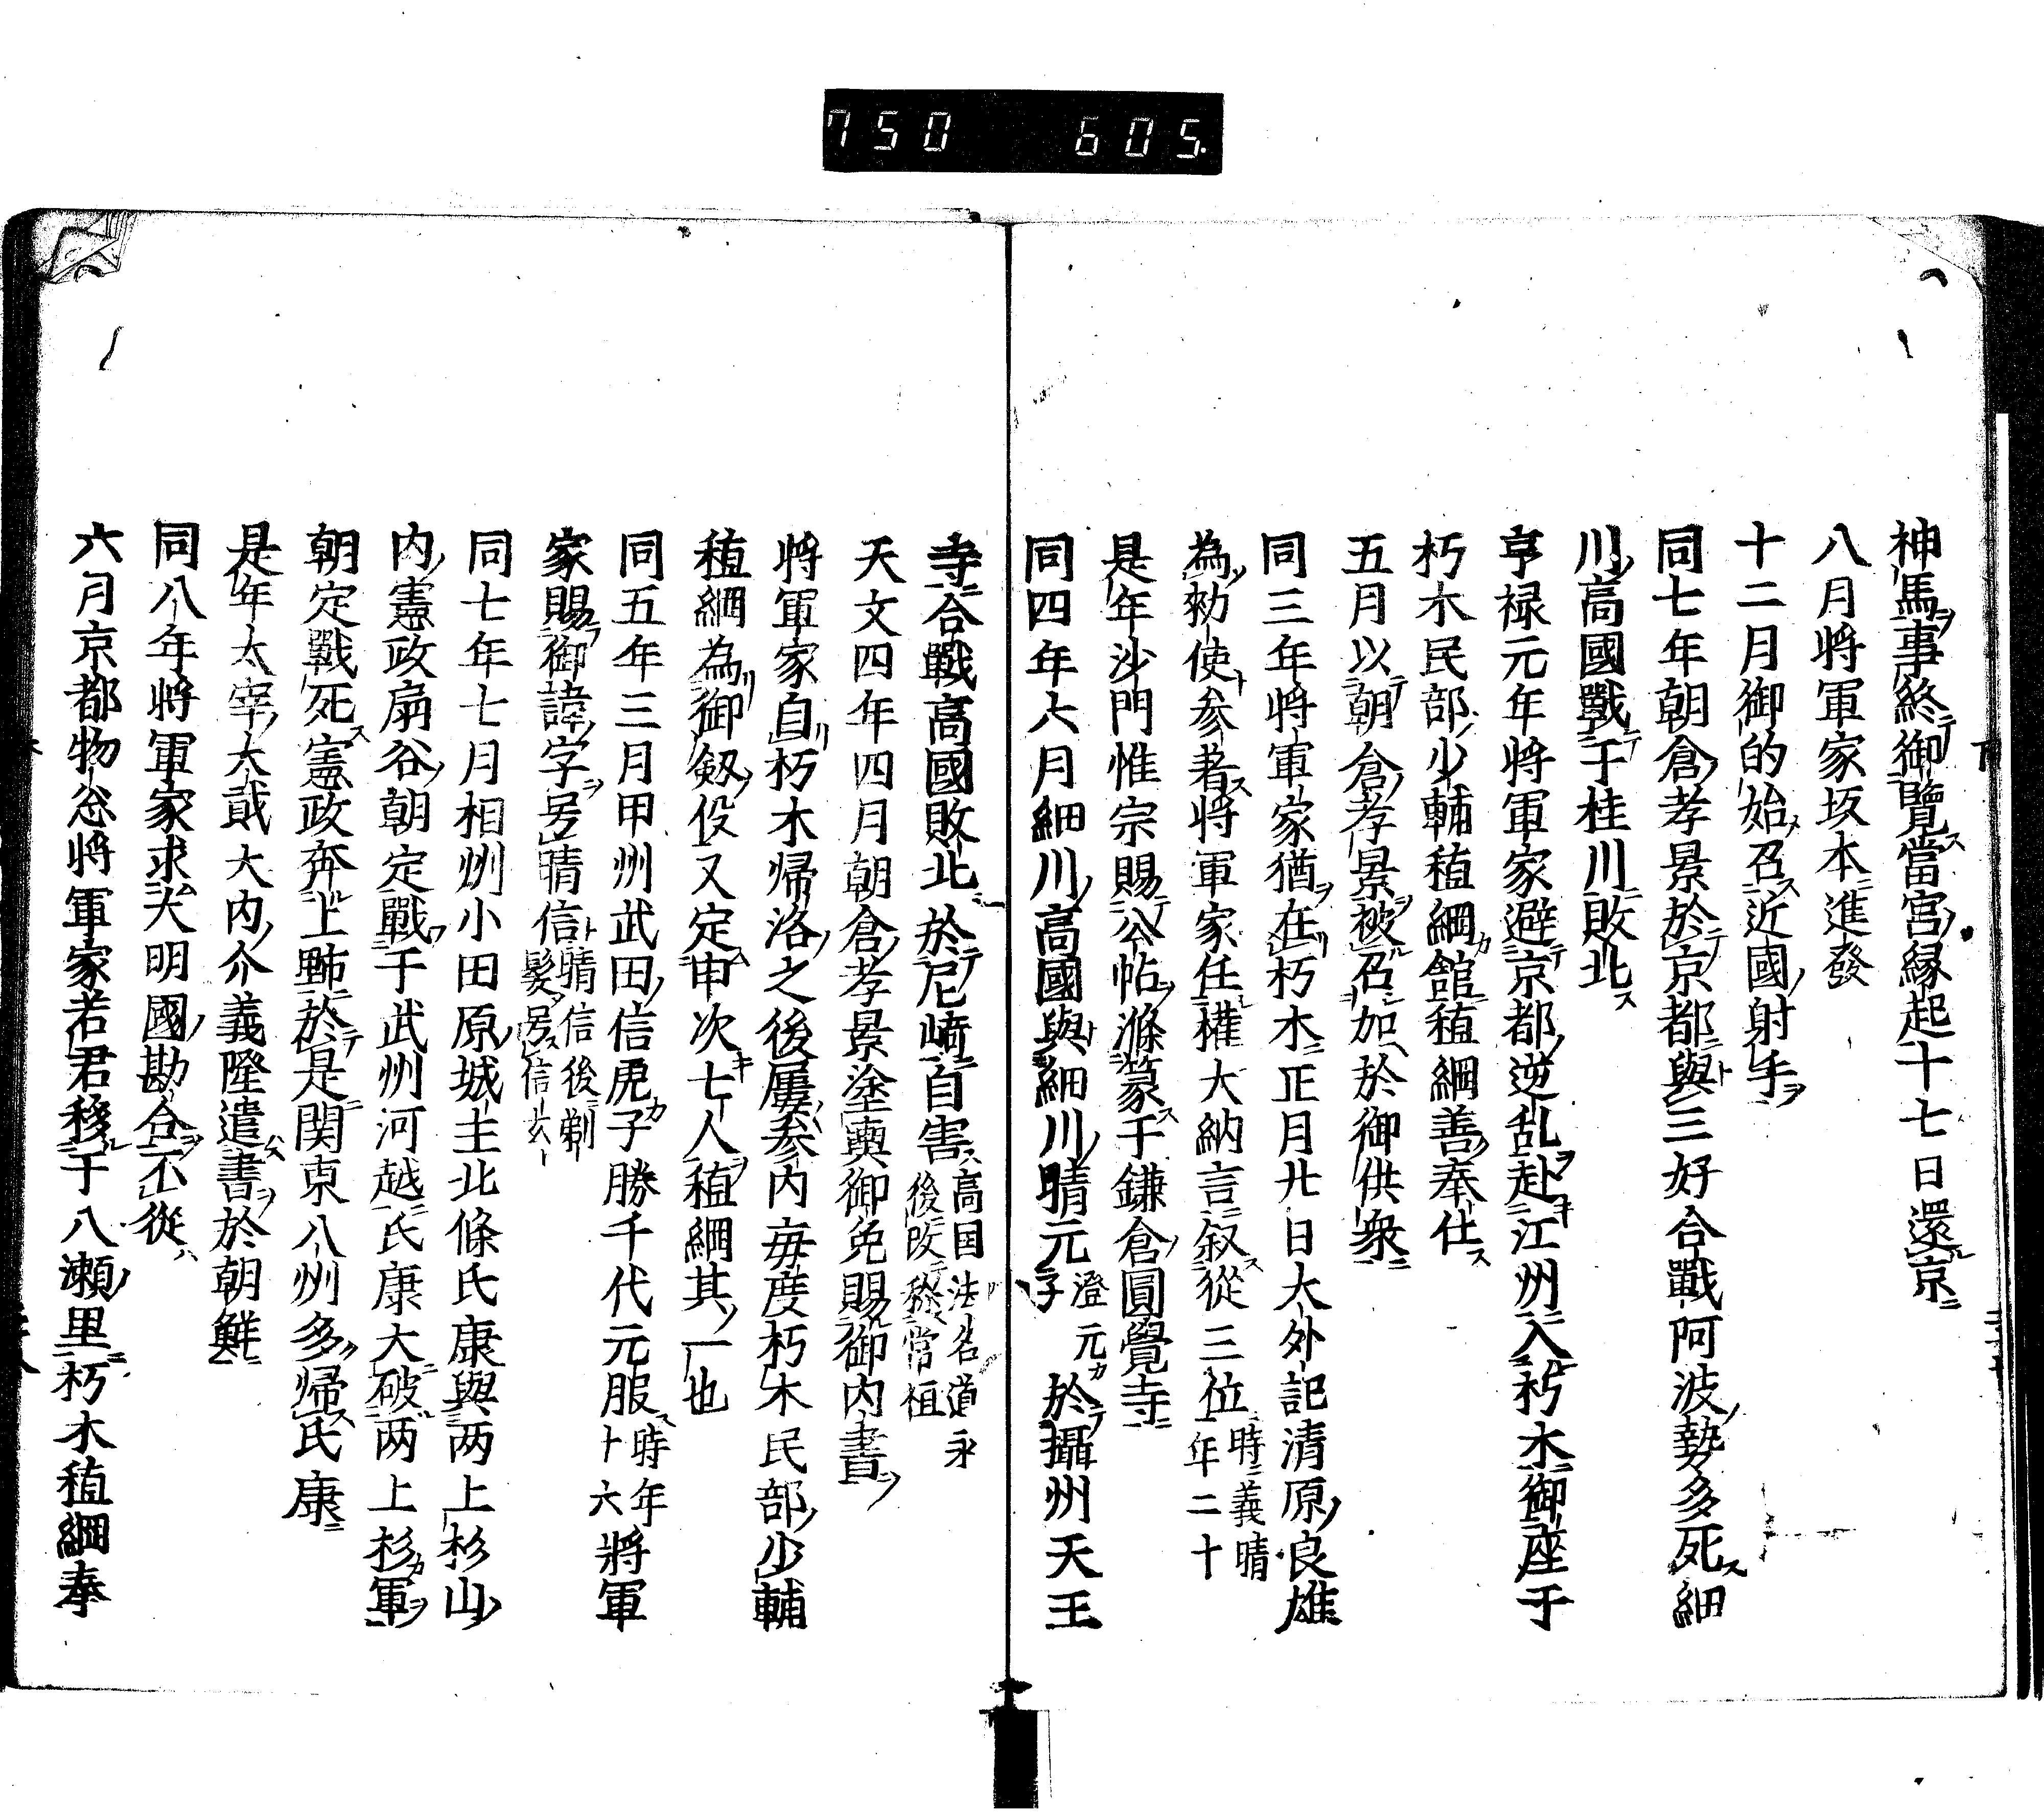 750 605.
神馬事終御覽當宮縁起十七日還京
八月将軍家坂本進發
十二月御的始召近國射手
同七年朝倉孝景於京都與三好合戰阿波勢多死細
川高國戰于桂川敗北
亨禄元年将軍家避京都逆乱赴江州入朽木御座于
朽木民部少輔稙綱館稙綱善奉仕
五月以朝倉孝景被召加於御供衆
同三年将軍家猶在朽木正月廿日大外記清原良雄
為勅使参着将軍家任權大納言叙從三位時義晴年二十
是年沙門惟宗賜公帖滌篆于鎌倉圓覺寺
同四年六月細川高國與細川晴元澄元子於攝州天王
寺合戰高國敗北於尼崎自害高国法名道永後改常桓
天文四年四月朝倉孝景塗輿御免賜御内書
将軍家自朽木帰洛之後屢参内毎度朽木民部少輔
稙綱為御劔役又定申次七人稙綱其一也
同五年三月甲州武田信虎子勝千代元服時年十六將軍
家賜御諱字号晴信晴信後剃髪号信玄
同七年七月相州小田原城主北條氏康與两上杉山
内憲政扇谷朝定戰于武州河越氏康大破两上杉軍
朝定戰死憲政奔上野於是関東八州多帰氏康
是年太宰大貳大内介義隆遣書於朝鮮
同八年將軍家求大明國勘合不從
六月京都物忩将軍家若君移于八瀬里朽木稙綱奉